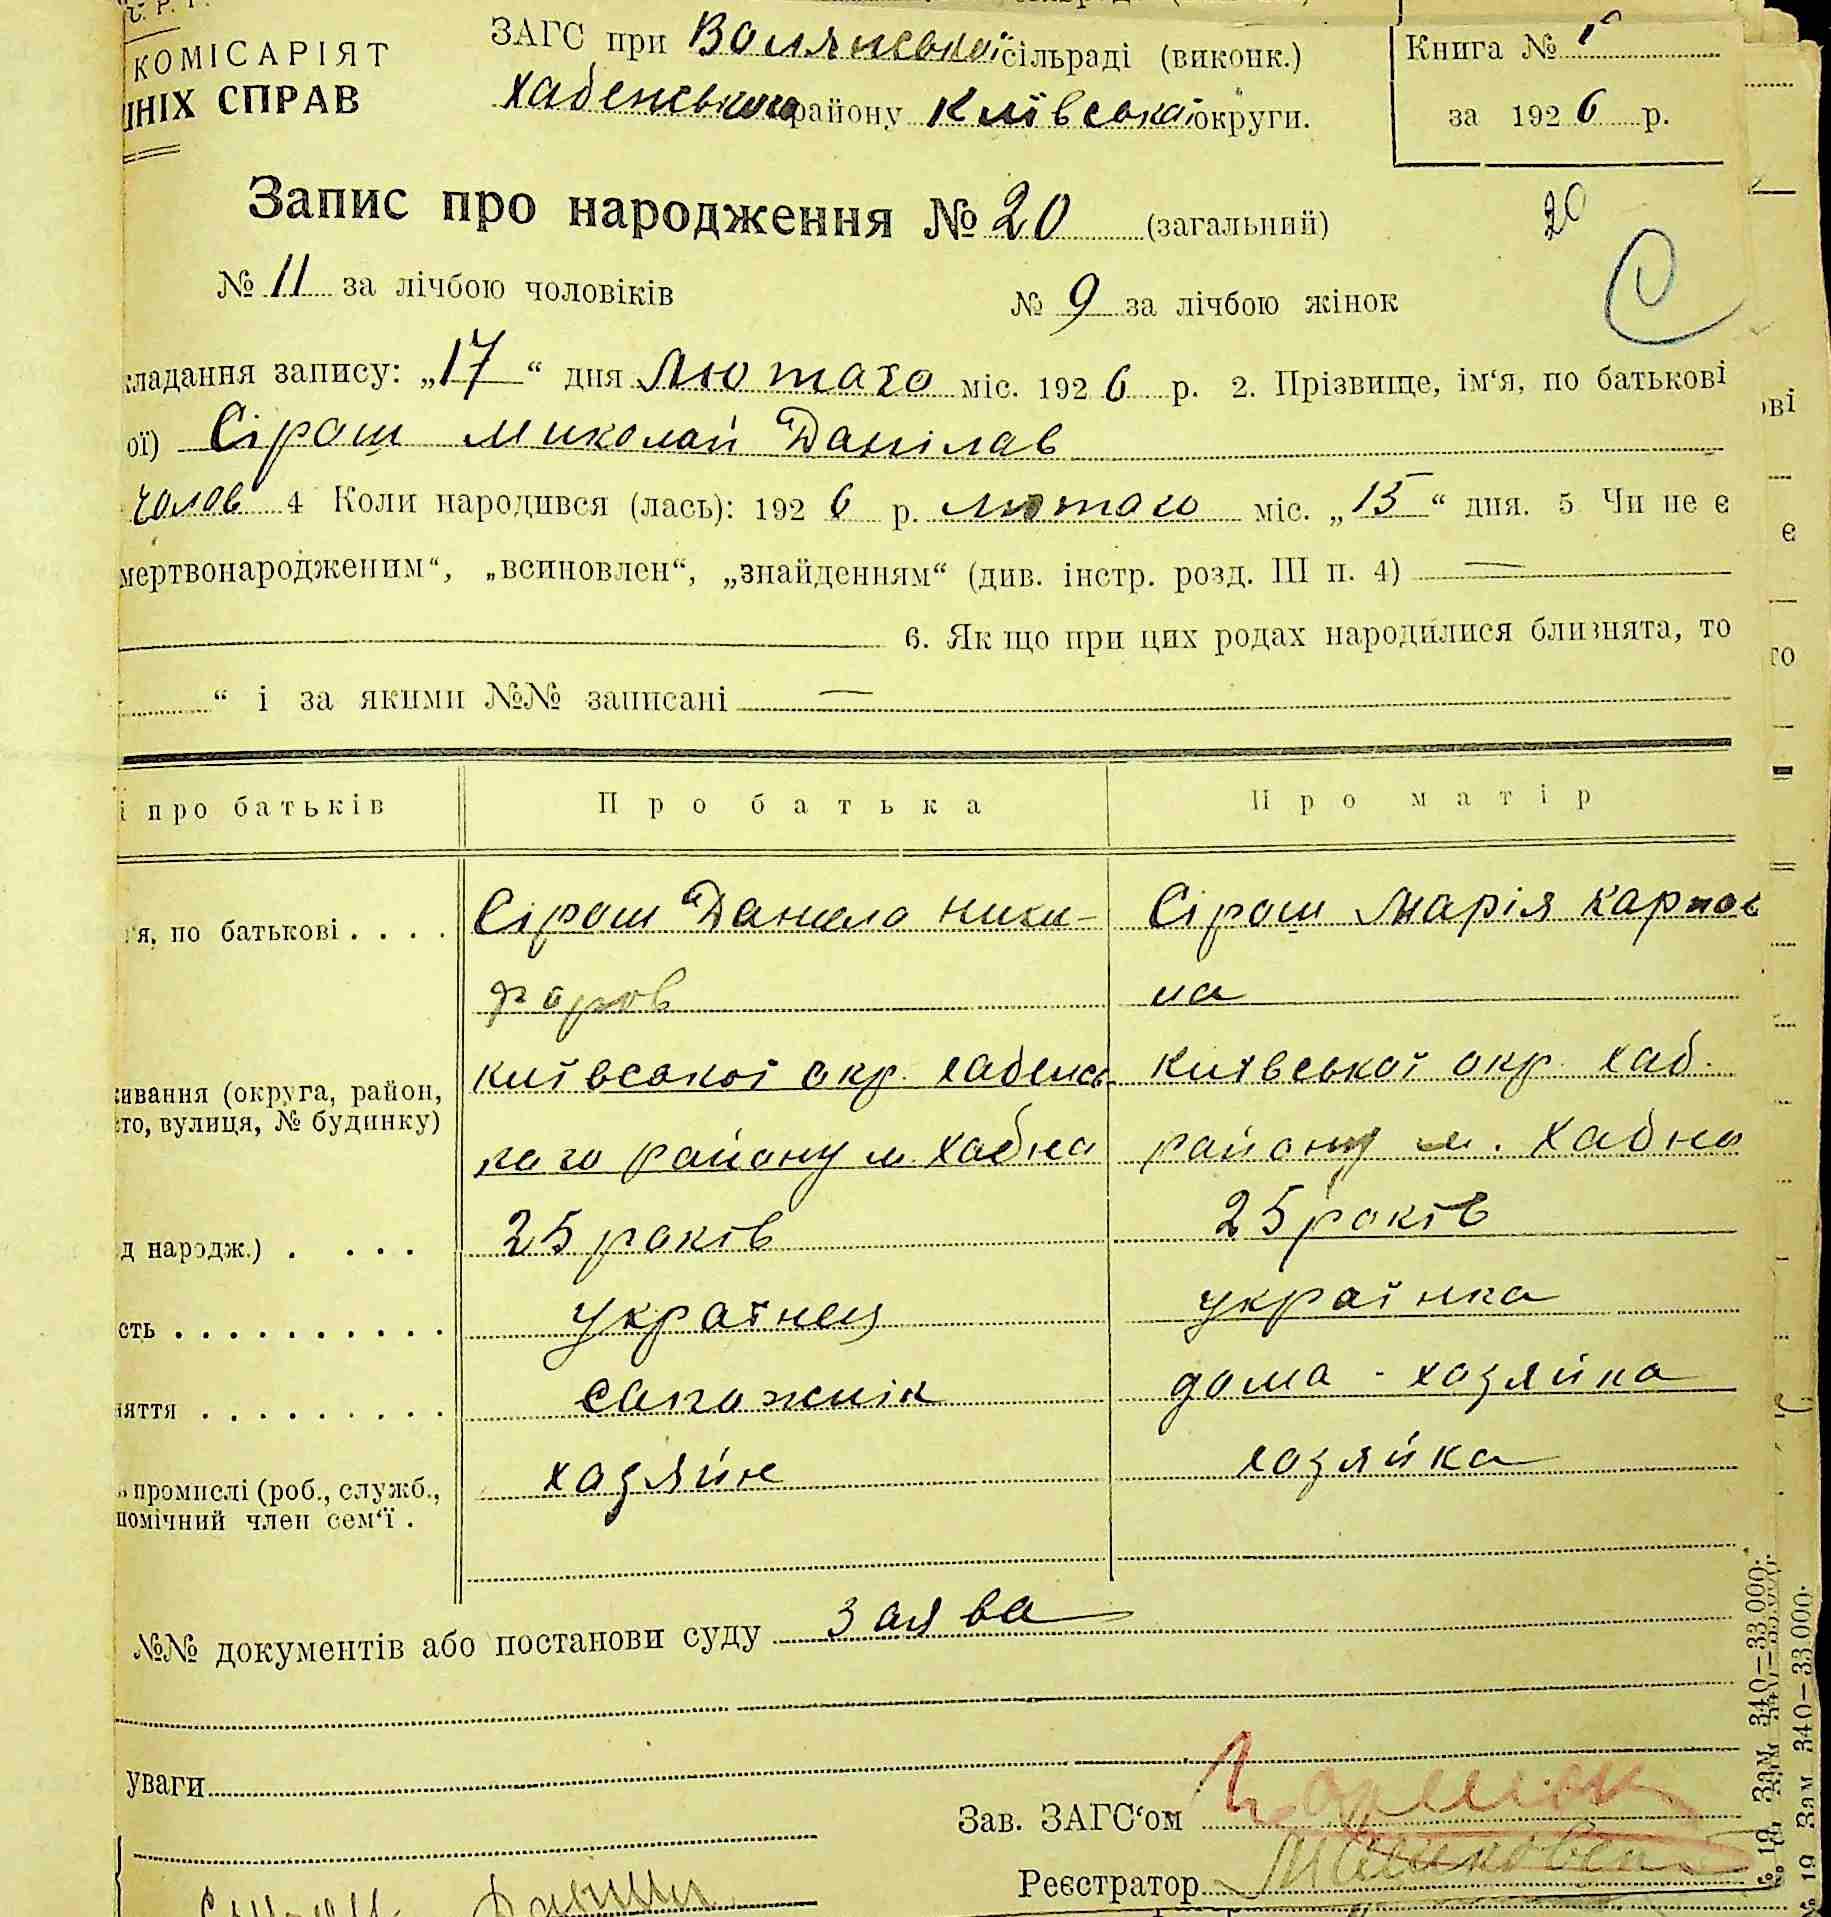 КОМІСАРІЯТ
ШНІХ СПРАВ
ЗАГС при Волянської сільраді (виконк.)
Хабенського району Київської округи.
Книга №
за 1926 р.
Запис про народження № 20 (загальний)
20
С
№ 11 за лічбою чоловіків № 9 за лічбою жінок
кладання запису: „17“ дня Лютого міс. 1926 р. 2. Прізвище, ім‘я, по батькові
ої) Сірош Миколай Данілов
чолов 4 Коли народився (лась): 1926 р. лютого міс. „15“ дня. 5 Чи не є
мертвонародженим“, „всиновлен“, „знайденням“ (див. інстр. розд. III п. 4) —
6. Як що при цих родах народилися близнята, то
“ і за якими №№ записані —
і про батьків Про батька Про матір
я, по батькові . . . . Сірош Данило Ники- Сірош Марія Карпов
форов на
Київської окр. Хабенсь- Київської окр. Хаб.
живання (округа, район,
то, вулиця, № будинку)
кого району м Хабна району м. Хабна
д народж.) . . . . 25 років 25 років
сть . . . . . . . . . . українец українка
няття . . . . . . . . . сапожник дома - хозяйка
хозяйн хозяйка
промислі (роб., служб.,
помічний член сем‘ї .
№№ документів або постанови суду Заява
уваги
Зав. ЗАГС‘ом
Реєстратор
№ 19 Зам 340—33.000.
№ 19 Зам 340—33.000.